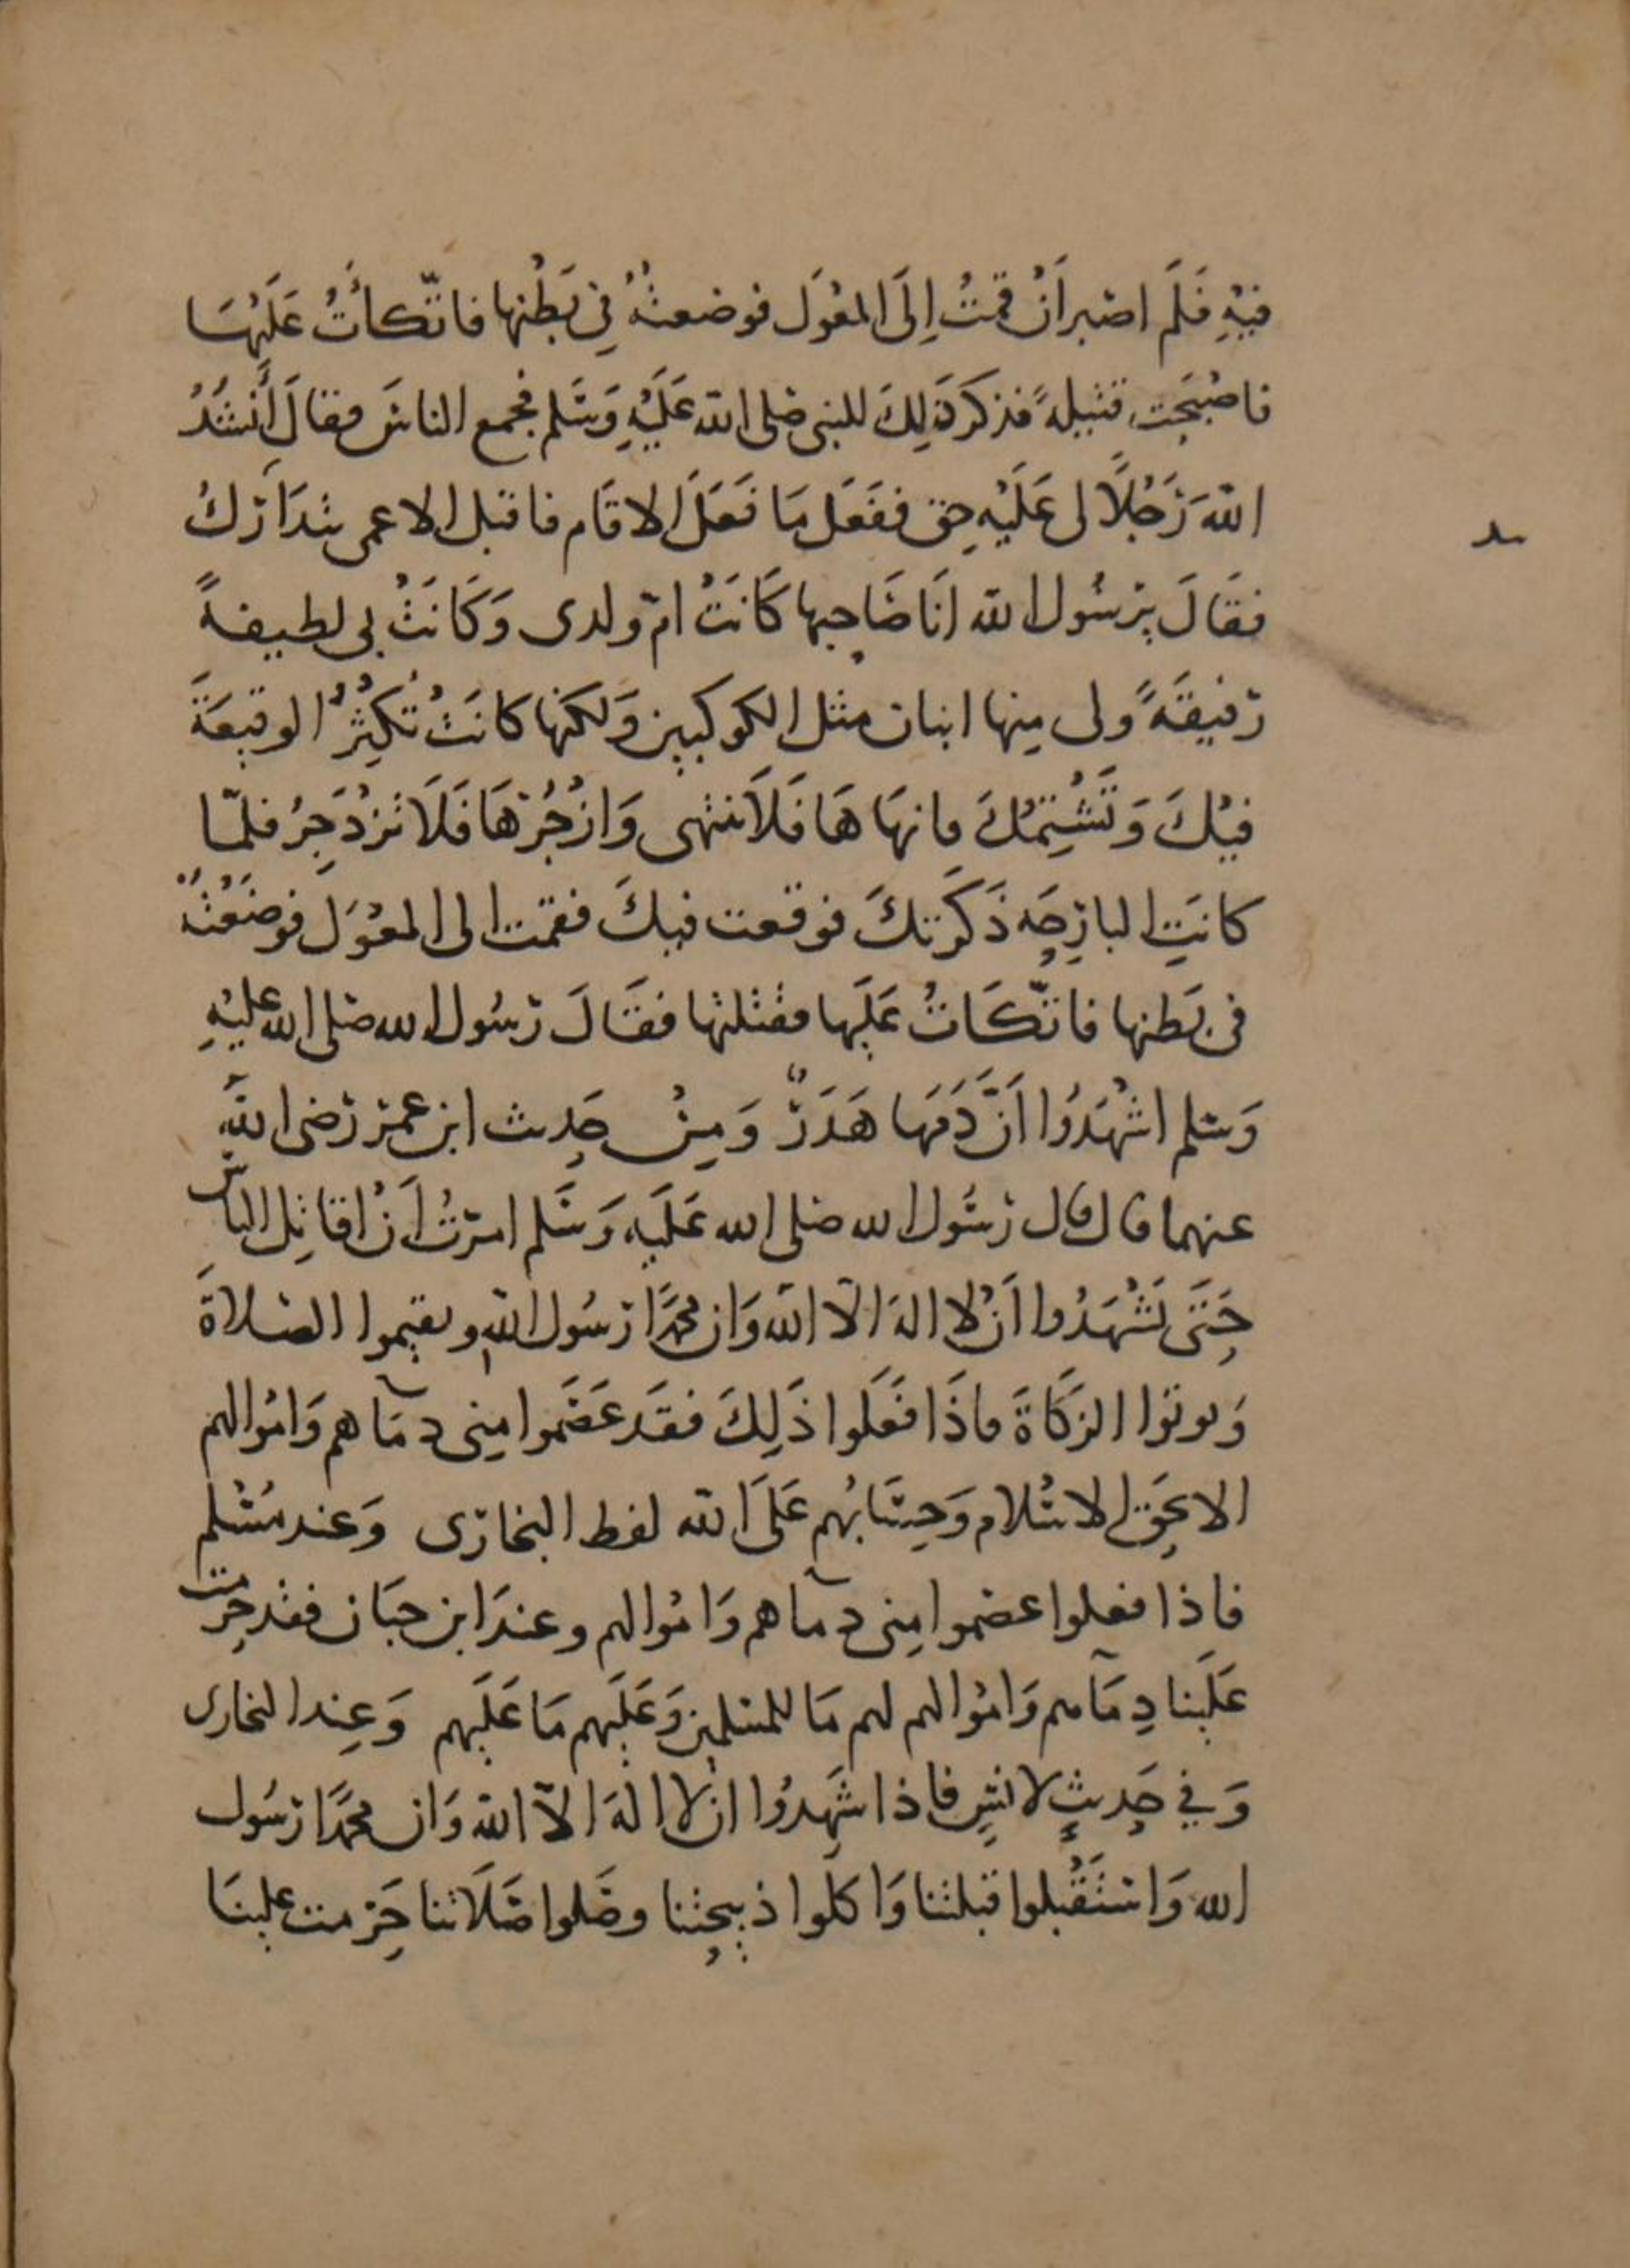 فيهِ فَلَم اصبر اَنْ قمتُ اِلَى المغْوَل فوضعتُهُ فِى بَطْنِها فاتّكأْتُ عَلَيْهَا
فاصْبَحت قتيلةً فذكرَ ذَلِكَ للنبى صلى الله عَلَيْهِ وَسَلم فجمع الناسَ فقالَ أَنشدُ
اللهَ رَجُلًا لى عَلَيْهِ حق ففَعَل مَا فَعَلَ الا قَام فاقبل الاعمى يتدَارَك
فقَالَ يرسُول الله اَنَا صَاحِبها كَانَتْ ام ولدى وَكَانَتْ بى لطيفةً
رَفيقَةً ولى مِنها ابنان مثل الكوكبين وَلكنها كانَتْ تُكثِرُ الوقيعَةَ
فيْكَ وَتَشْتِمُكَ فانهَا هَا فَلَا تنتهى وَازْجُرُهَا فَلَا تَزْدَجِرُ فلمّا
كانَتِ البارِحَه ذَكَرتكَ فوقعت فيكَ فقمت الى المغْوَل فوضَعْتُهُ
فى بَطنها فاتّكَاتُ عَلَيها فقتلتها فقَالَ رَسُول الله صلى الله عليْهِ
وَسلم اشْهَدُوا اَنَّ دَمَها هَدَرٌ وَمِنْ حَدِيث ابن عمر رَضى اللهُ
عنهما قال قال رَسُول الله صلى الله عَلَيه وَسَلم امرتُ اَنْ اقاتِل الناس
حَتَى يَشْهَدُوا اَنْ لا اله الا الله وَان محمدًا رَسُول اللهِ ويقيموا الصلاةَ
وَيوتوا الزكَاةَ فاذَا فَعَلوا ذَلِكَ فقَد عَصَموا مِنى دمَآهم وَاموالهم
الا بحَقِ الاسْلام وَحِسَابُهم عَلَى الله لفظ البخارى وَعند مُسْلم
فاذا فعلوا عصموا مِنى دمآهم وَاموالهم وعندَ ابن حبَان فقد حرمت
عَلَينا دِمَآهم وَاموالهم لهم مَا للمسلمين وَعَلَيهم مَا عَلَيهم وَعِند البخارى
وَفي حَدِيثٍ لانسٍ فاذا شَهِدُوا ان لا اله الا الله وَان محمدًا رَسُول
الله وَاسْتَقْبلوا قبلتنا وَاكلوا ذبيحتنا وصَلوا صَلَاتنا حَرمت علينَا